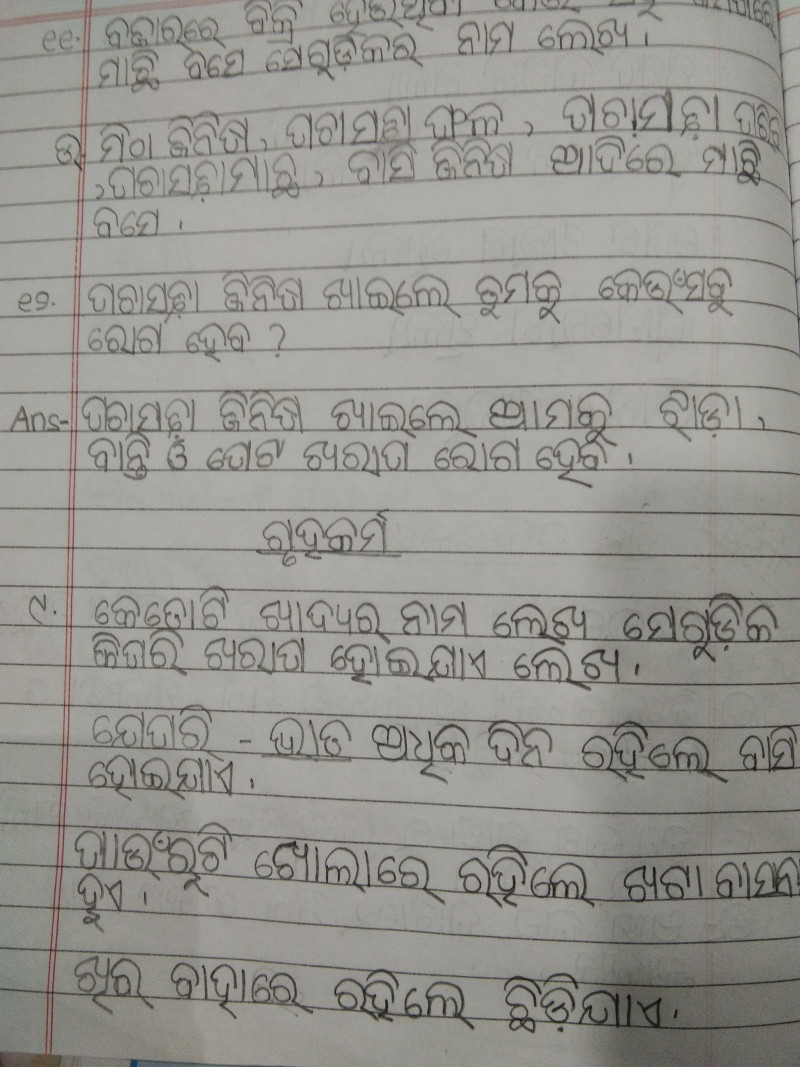 ୧୧. ବଜାରରେ ବିକ୍ରି ହେଉଥିବା
ମାଛି ବସେ ସେଗୁଡ଼ିକର ନାମ ଲେଖ।
ଉ ମିଠା ଜିନିଷ, ପଚାସଢ଼ା ଫଳ, ପଚାସଢ଼ା
,ପଚାସଢ଼ା ମାଛ, ବାସି ଜିନିଷ ଆଦିରେ ମାଛି
ବସେ .
୧୨. ପଚାସଢ଼ା ଜିନିଷ ଖାଇଲେ ତୁମକୁ କେଉଁସବୁ
ରୋଗ ହେବ ?
Ans- ପଚାସଢ଼ା ଜିନିଷ ଖାଇଲେ ଆମକୁ ଝାଡ଼ା,
ବାନ୍ତି ଓ ପେଟ ଖରାପ ରୋଗ ହେବ .
ଗୃହକର୍ମ
୯. କେତୋଟି ଖାଦ୍ୟର ନାମ ଲେଖ ସେଗୁଡ଼ିକ
କିପରି ଖରାପ ହୋଇଯାଏ ଲେଖ .
ଯେପରି - ଭାତ ଅଧିକ ଦିନ ରହିଲେ ବାସି
ହୋଇଯାଏ .
ପାଉଁରୁଟି ଖୋଲାରେ ରହିଲେ ଖଟା ବାସନା
ହୁଏ .
ଖିର ବାହାରେ ରହିଲେ ଛିଡ଼ିଯାଏ .